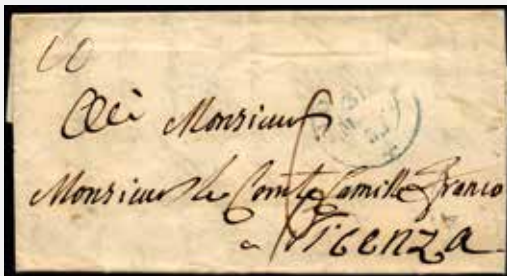 10
A Monsieur
Monsieur le Comte Camille Franco
a Vicenza